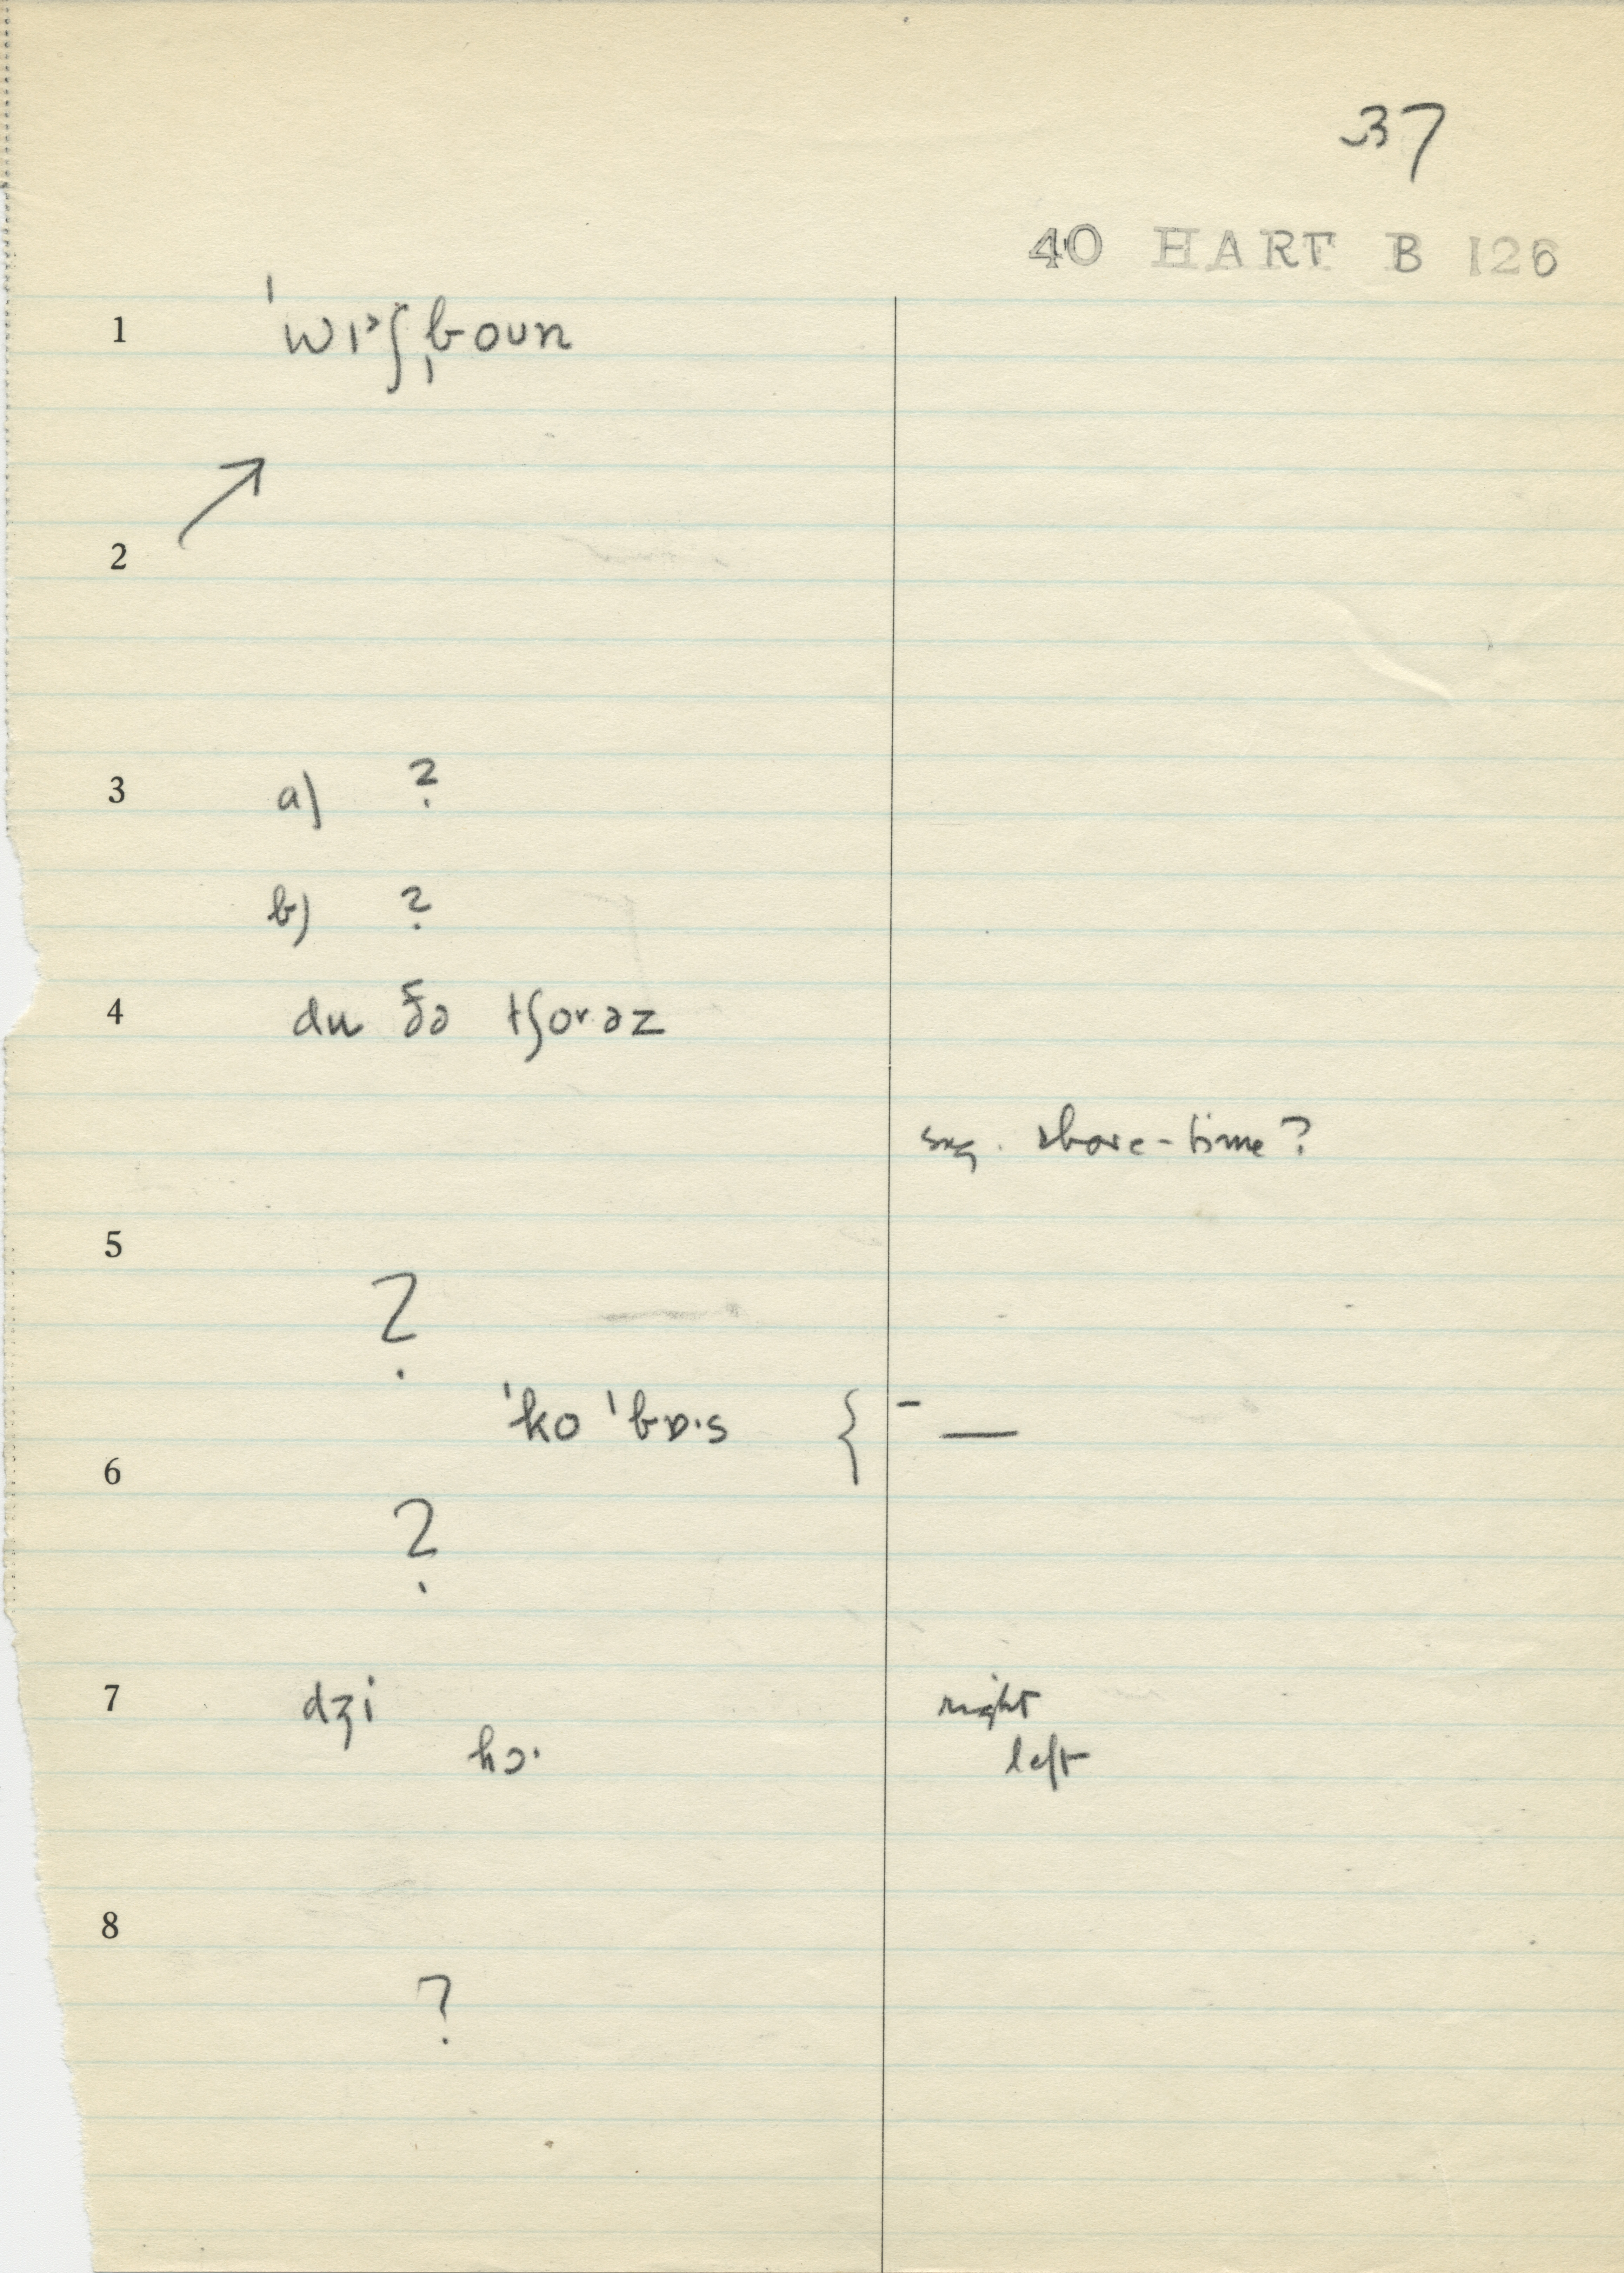 37
40 HART B 126
1 ˈwɪ˃ʃˌboun
↗
2
3 a) ?
b) ?
4 du ðə tʃorəz
sug. chore-time?
5
?
ˈko ˈbɒ·s { - —
6
?
7 dʒi right
hɔ· left
8
?